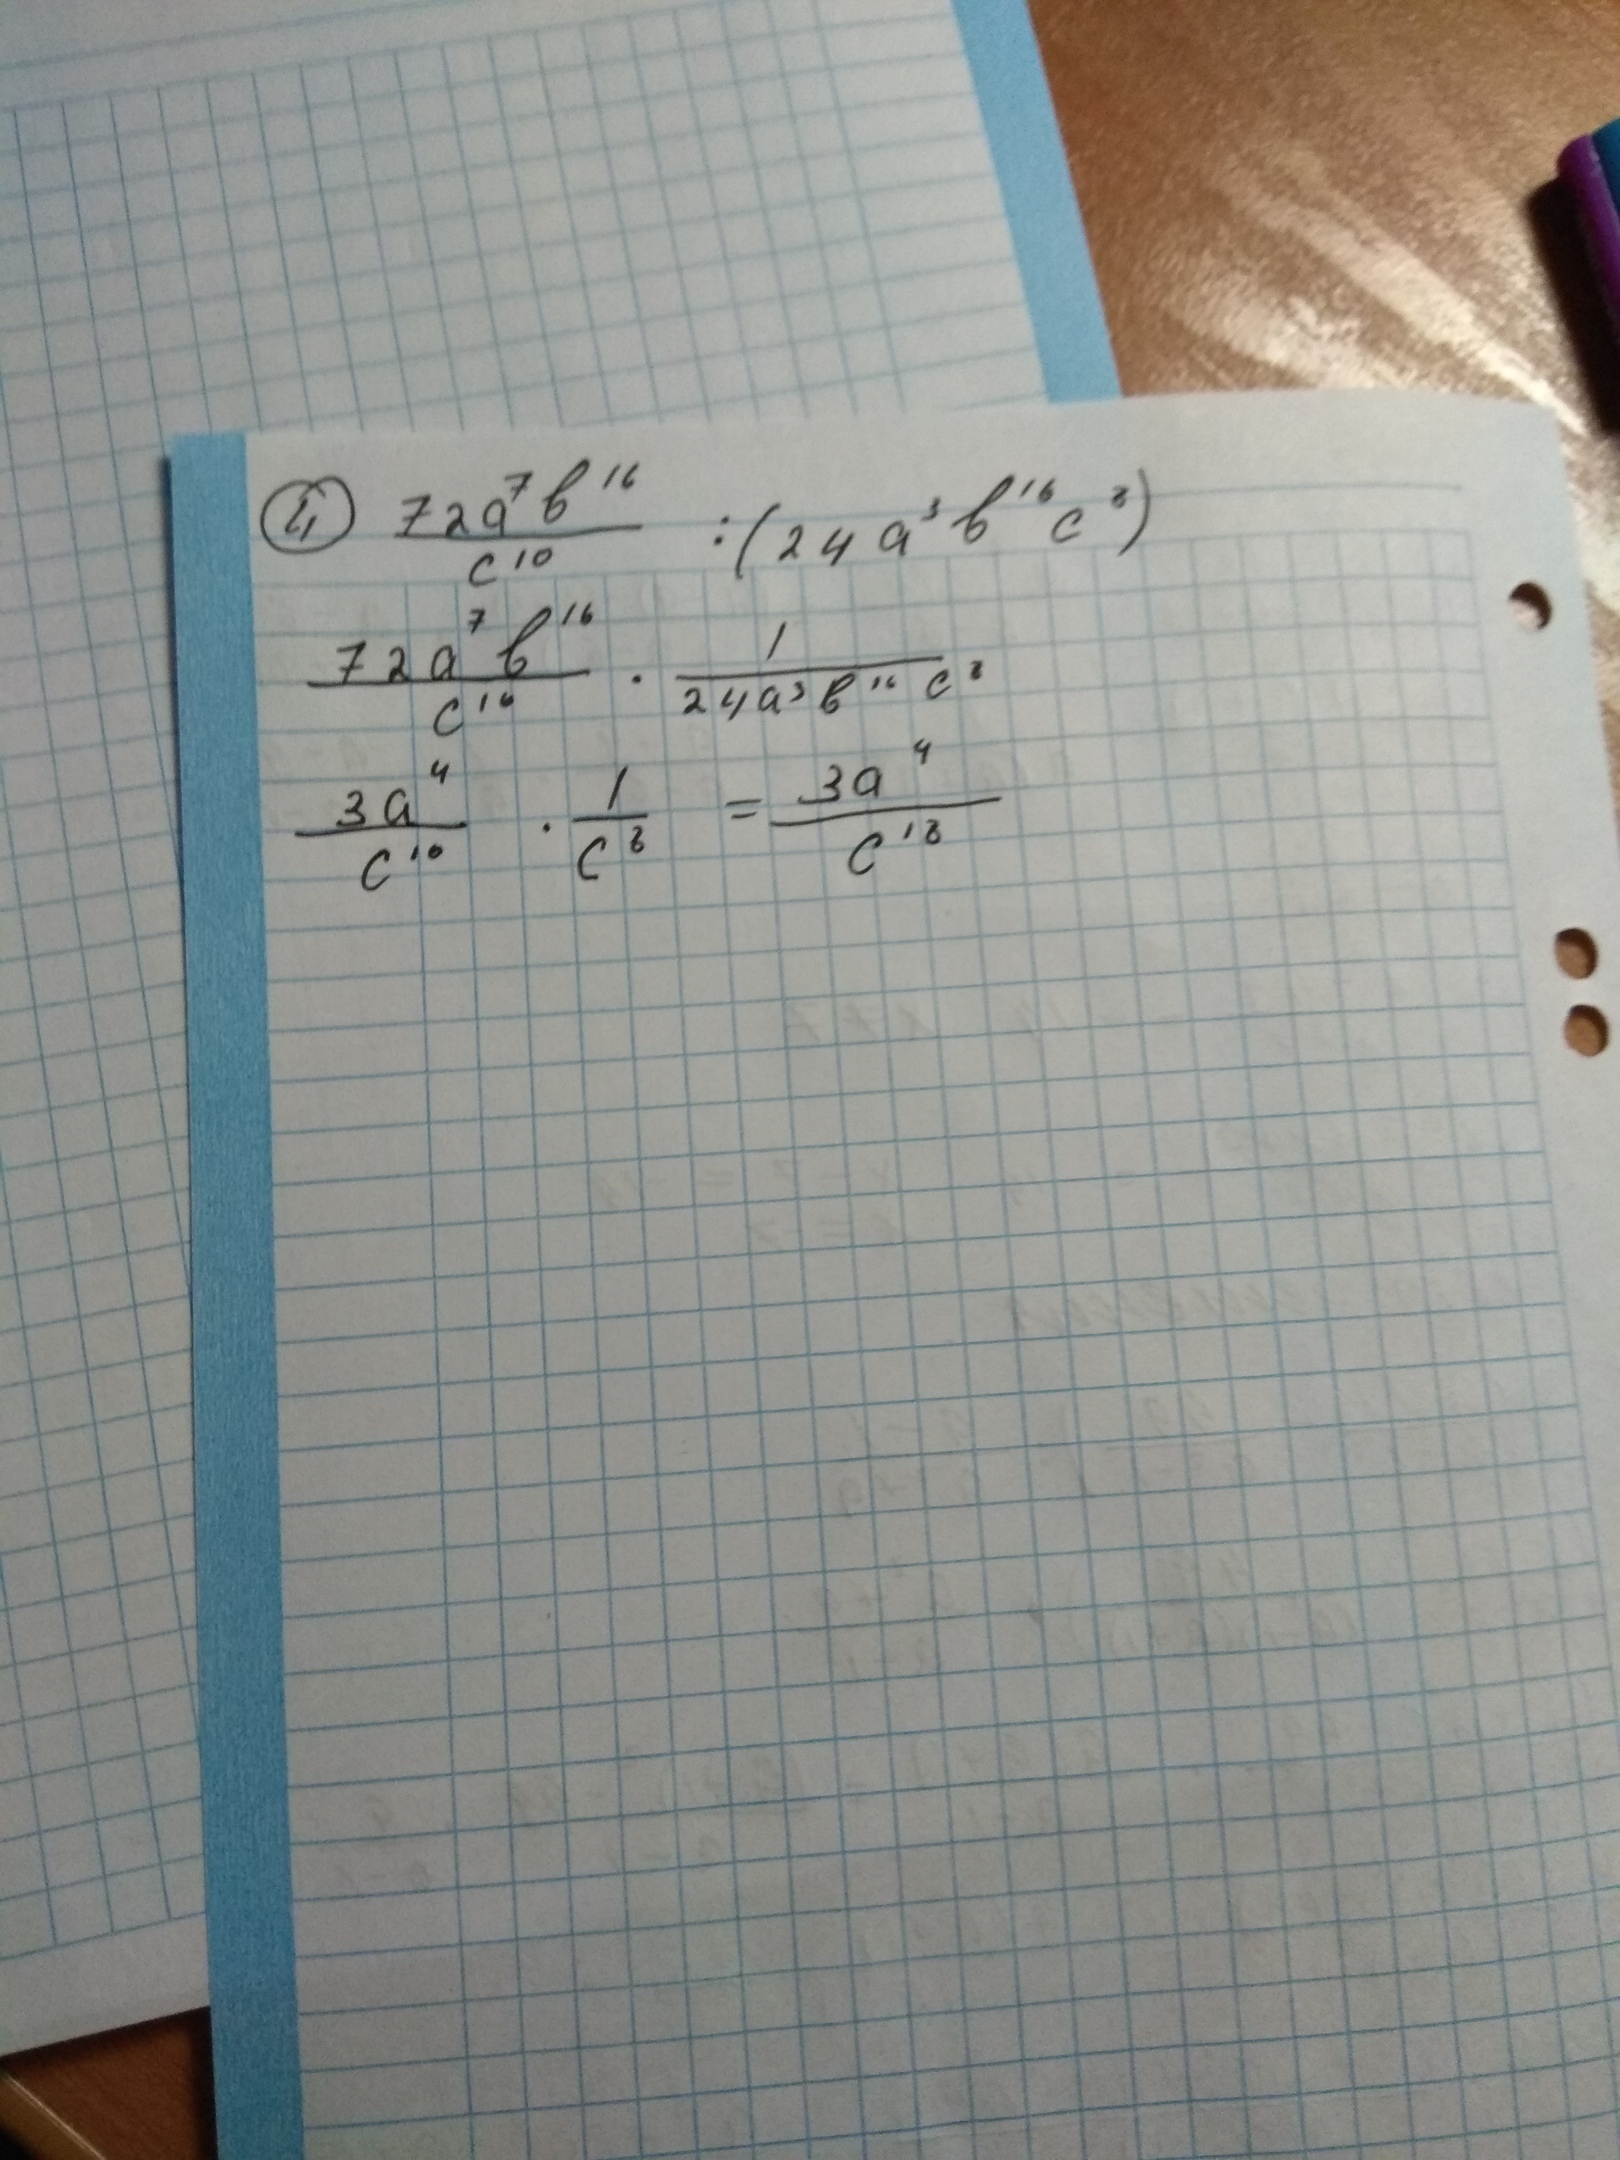 ④ 72a⁷b¹⁶/c¹⁰ : (24a³b¹⁶c⁸)
72a⁷b¹⁶/c¹⁰ · 1/24a³b¹⁶c⁸
3a⁴/c¹⁰ · 1/c⁸ = 3a⁴/c¹⁸